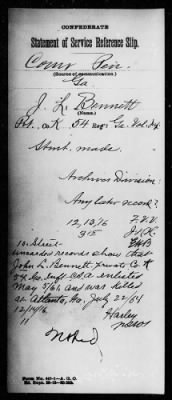 CONFEDERATE
Statement of Service Reference Slip.
Com'r Pen.
(Source of communication.)
Ga
J. L. Bennett
(Name.)
Pvt. Co. K 54 Reg't Ga. Vol. Inf.
Stmt. made.
Archives Division:
Any later record?
12,13/16
315
unmarked records show that
John L. Bennett, Private Co K
54 Ga Inf C.S.A. enlisted
May 5/61 and was killed
at Atlanta, Ga, July 22/64
12/14/16 Harley
11
Noted
Form No. 441-1—A. G. O.